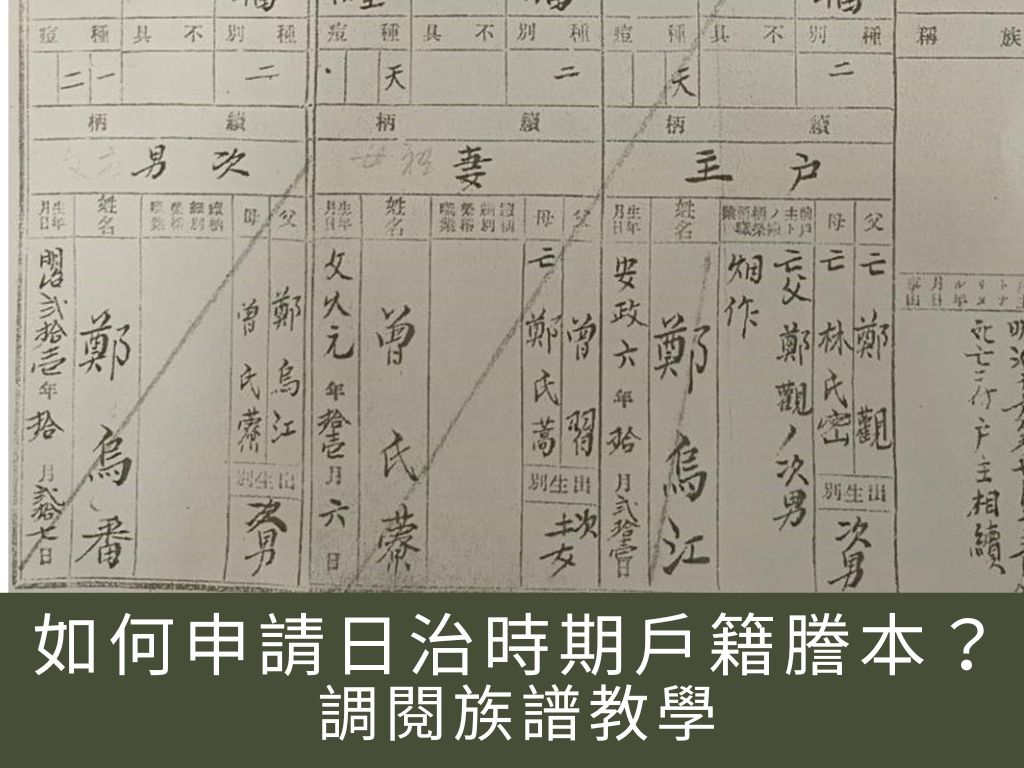 族稱
死亡二付戶主相續
種別
不具
種痘
二
天
續柄
戶主
父
亡鄭觀
母
亡林氏密
出生別
次男
亡父鄭觀ノ次男
畑作
姓名
鄭烏江
生年月日
安政六年拾月貳拾壹日
種別
不具
種痘
二
天
續柄
妻
父
曾習
母
亡鄭氏蒿
出生別
次女
姓名
曾氏藔
生年月日
文久元年拾壹月六日
種別
不具
種痘
二
一
二
續柄
次男
父
鄭烏江
母
曾氏藔
出生別
次男
姓名
鄭烏番
生年月日
明治貳拾壹年拾月貳拾七日
如何申請日治時期戶籍謄本？
調閱族譜教學